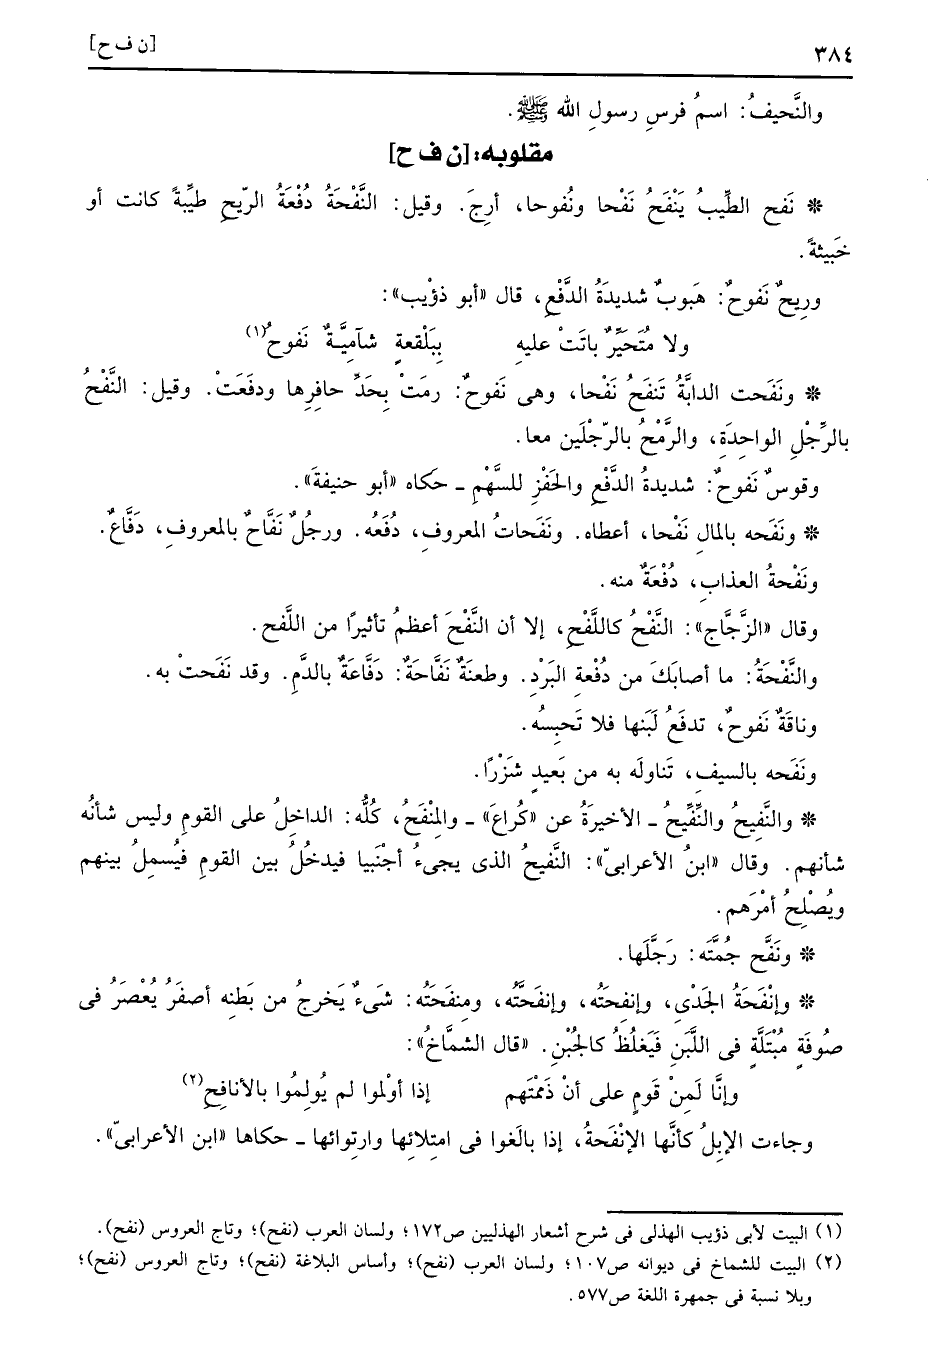 ٣٨٤ [ن ف ح]
والنَّحيفُ: اسمُ فرسِ رسولِ الله ﷺ.
مقلوبه: [ن ف ح]
* نَفَح الطِّيبُ يَنْفَحُ نَفْحا ونُفوحا، أرِجَ. وقيل: النَّفْحَةُ دُفْعَةُ الرِّيحِ طيِّبةً كانت أو
خَبيثةً.
ورِيحٌ نَفوحٌ: هَبوبٌ شديدَةُ الدَّفْعِ، قال «أبو ذؤيب»:
ولا مُتَحَيِّرٌ باتَتْ عليهِ بِبَلْقعةٍ شآمِيَّةٌ نَفوحُ(١)
* ونَفَحت الدابَّةُ تَنفَحُ نَفْحا، وهى نَفوحٌ: رمَتْ بِحَدِّ حافِرِها ودفَعَتْ. وقيل: النَّفْحُ
بالرِّجْلِ الواحِدَةِ، والرَّمْحُ بالرِّجْلَين معا.
وقوسٌ نَفوحٌ: شديدةُ الدَّفْعِ والحَفْزِ للسَّهْمِ ـ حكاه «أبو حنيفةَ».
* ونَفَحه بالمالِ نَفْحا، أعطاه. ونَفَحاتُ المعروفِ، دُفَعُه. ورجلٌ نَفَّاحٌ بالمعروفِ، دَفَّاعٌ.
ونَفْحةُ العذابِ، دُفْعَةٌ منه.
وقال «الزَّجَّاج»: النَّفْحُ كاللَّفْحِ، إلا أن النَّفْحَ أعظمُ تأثيرًا من اللَّفحِ.
والنَّفْحَةُ: ما أصابَكَ من دُفْعةِ البَرْدِ. وطعنَةٌ نَفَّاحَةٌ: دَفَّاعَةٌ بالدَّمِ. وقد نَفَحتْ به.
وناقَةٌ نَفوحٌ، تدفَعُ لَبَنها فلا تَحبِسُه.
ونَفَحه بالسيفِ، تَناولَه به من بَعيدٍ شَزْرًا.
* والنَّفِيحُ والنِّفِّيحُ ـ الأخيرَةُ عن «كُراعَ» ـ والمِنْفَحُ، كلُّه: الداخِلُ على القومِ وليس شأنُه
شأنَهم. وقال «ابنُ الأعرابىّ»: النَّفيحُ الذى يجىءُ أجْنَبيا فيدخُلُ بين القومِ فيُسمِلُ بينهم
ويُصْلِحُ أمْرَهم.
* ونَفَّح جُمَّتَه: رَجَّلَها.
* وإنْفَحَةُ الجَدْىِ، وإنفِحتُه، وإنفَحَّتُه، ومِنفَحَتُه: شَىءٌ يَخرجُ من بَطنِه أصفَرُ يُعْصَرُ فى
صُوفَةٍ مُبْتَلَّةٍ فى اللَّبَنِ فَيَغلُظُ كالجُبْنِ. «قال الشمَّاخُ»:
وإنَّا لَمِنْ قَومٍ على أنْ ذَمَمْتَهم إذا أوْلموا لم يُولِمُوا بالأنافحِ(٢)
وجاءت الإبلُ كأنَّها الإنْفَحةُ، إذا بالَغوا فى امتِلائِها وارتِوائها ـ حكاها «ابن الأعرابىّ».
(١) البيت لأبى ذؤيب الهذلى فى شرح أشعار الهذليين ص١٧٢؛ ولسان العرب (نفح)؛ وتاج العروس (نفح).
(٢) البيت للشماخ فى ديوانه ص١٠٧؛ ولسان العرب (نفح)؛ وأساس البلاغة (نفح)؛ وتاج العروس (نفح)؛
وبلا نسبة فى جمهرة اللغة ص٥٧٧.